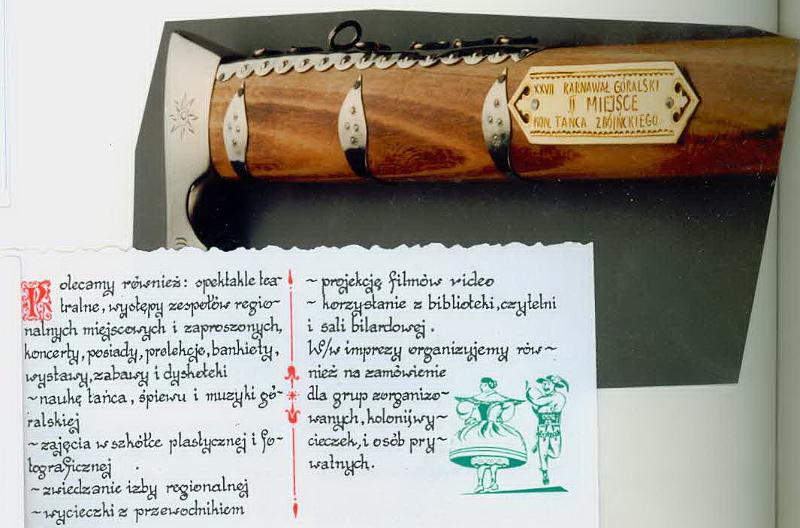 XXVII KARNAWAŁ GÓRALSKI
II MIEJSCE
KON. TAŃCA ZBÓJNICKIEGO
Polecamy również: spektakle tea-
tralne, występy zespołów regio-
nalnych miejscowych i zaproszonych,
koncerty, posiady, prelekcje, bankiety,
wystawy, zabawy i dyskoteki
~ naukę tańca, śpiewu i muzyki gó-
ralskiej
~ zajęcia w szkółce plastycznej i fo-
tograficznej
~ zwiedzanie izby regionalnej
~ wycieczki z przewodnikiem
~ projekcję filmów video
~ korzystanie z biblioteki, czytelni
i sali bilardowej.
W/w imprezy organizujemy rów~
nież na zamówienie
dla grup zorganizo~
wanych, kolonij, wy~
cieczek, i osób pry~
watnych.